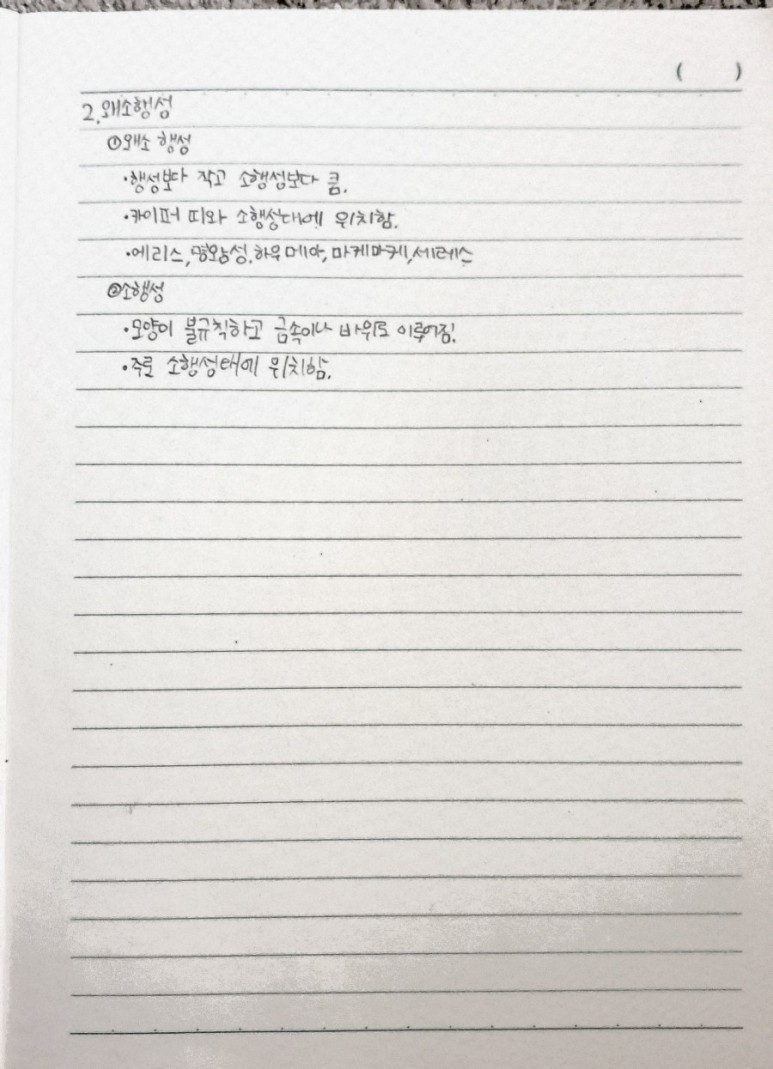 (     )
2. 왜소행성
①왜소 행성
·행성보다 작고 소행성보다 큼.
·카이퍼 띠와 소행성대에 위치함.
·에리스, 명왕성, 하우메아, 마케마케, 세레스
②소행성
·모양이 불규칙하고 금속이나 바위로 이루어짐.
·주로 소행성대에 위치함.